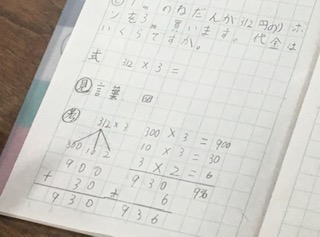 のねだんが312円のリボ
ンを3 買います。代金は
いくらですか。
式 312×3=
見 言葉 図
考 312×3
300 10 2
300×3=900
10×3=30
3×2=6
900
+30
930
930
+6
936
936